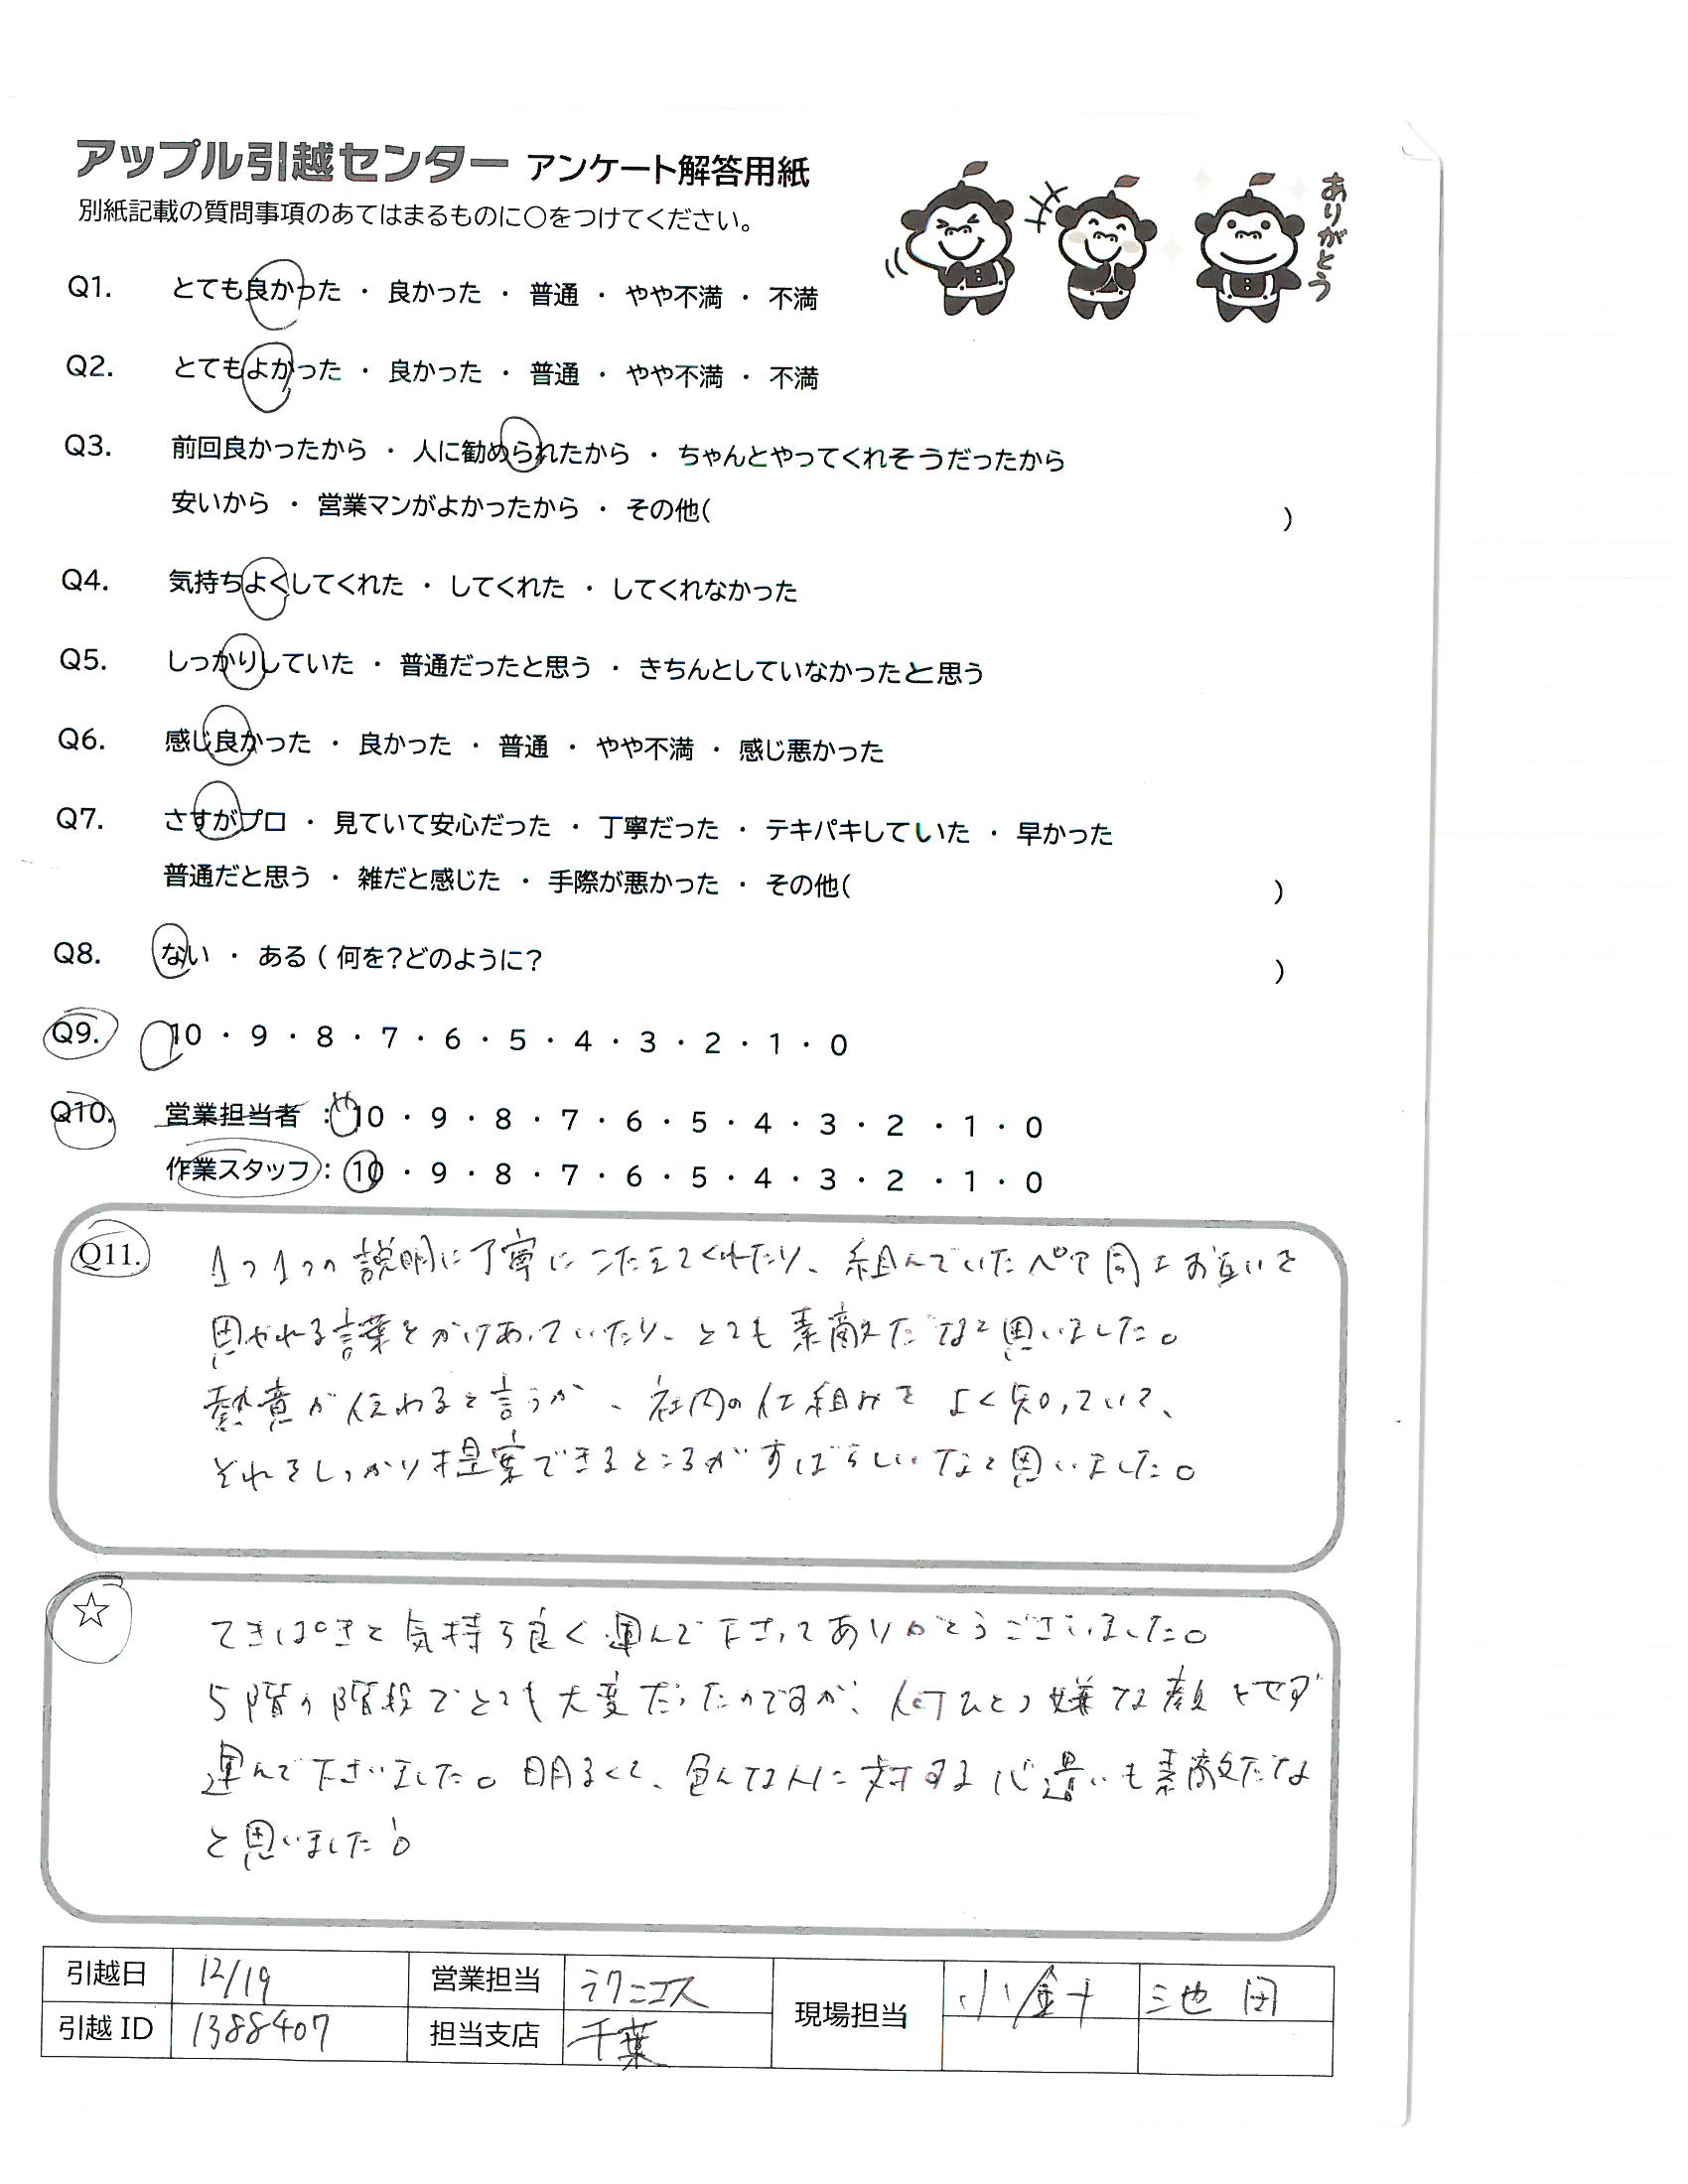 アップル引越センター アンケート解答用紙
別紙記載の質問事項のあてはまるものに○をつけてください。
ありがとう
Q1. とても良かった ・ 良かった ・ 普通 ・ やや不満 ・ 不満
Q2. とてもよかった ・ 良かった ・ 普通 ・ やや不満 ・ 不満
Q3. 前回良かったから ・ 人に勧められたから ・ ちゃんとやってくれそうだったから
安いから ・ 営業マンがよかったから ・ その他( )
Q4. 気持ちよくしてくれた ・ してくれた ・ してくれなかった
Q5. しっかりしていた ・ 普通だったと思う ・ きちんとしていなかったと思う
Q6. 感じ良かった ・ 良かった ・ 普通 ・ やや不満 ・ 感じ悪かった
Q7. さすがプロ ・ 見ていて安心だった ・ 丁寧だった ・ テキパキしていた ・ 早かった
普通だと思う ・ 雑だと感じた ・ 手際が悪かった ・ その他( )
Q8. ない ・ ある ( 何を?どのように? )
Q9. 10 ・ 9 ・ 8 ・ 7 ・ 6 ・ 5 ・ 4 ・ 3 ・ 2 ・ 1 ・ 0
Q10. 営業担当者 : 10 ・ 9 ・ 8 ・ 7 ・ 6 ・ 5 ・ 4 ・ 3 ・ 2 ・ 1 ・ 0
作業スタッフ : 10 ・ 9 ・ 8 ・ 7 ・ 6 ・ 5 ・ 4 ・ 3 ・ 2 ・ 1 ・ 0
Q11. 1つ1つの説明に丁寧にこたえてくれたり、組んでいたペア同士お互いを
思やれる言葉をかけあっていたり、とても素敵だなと思いました。
熱意が伝わると言うか、社内の仕組みをよく知っていて、
それをしっかり提案できるところがすばらしいなと思いました。
☆ てきぱきと気持ち良く運んで下さってありがとうございました。
5階の階段でとても大変だったのですが、何ひとつ嫌な顔をせず
運んで下さいました。明るくて、色んな人に対する心遣いも素敵だな
と思いました。
引越日 12/19 営業担当 ラクニコス 現場担当 小金井 池田
引越 ID 1388407 担当支店 千葉